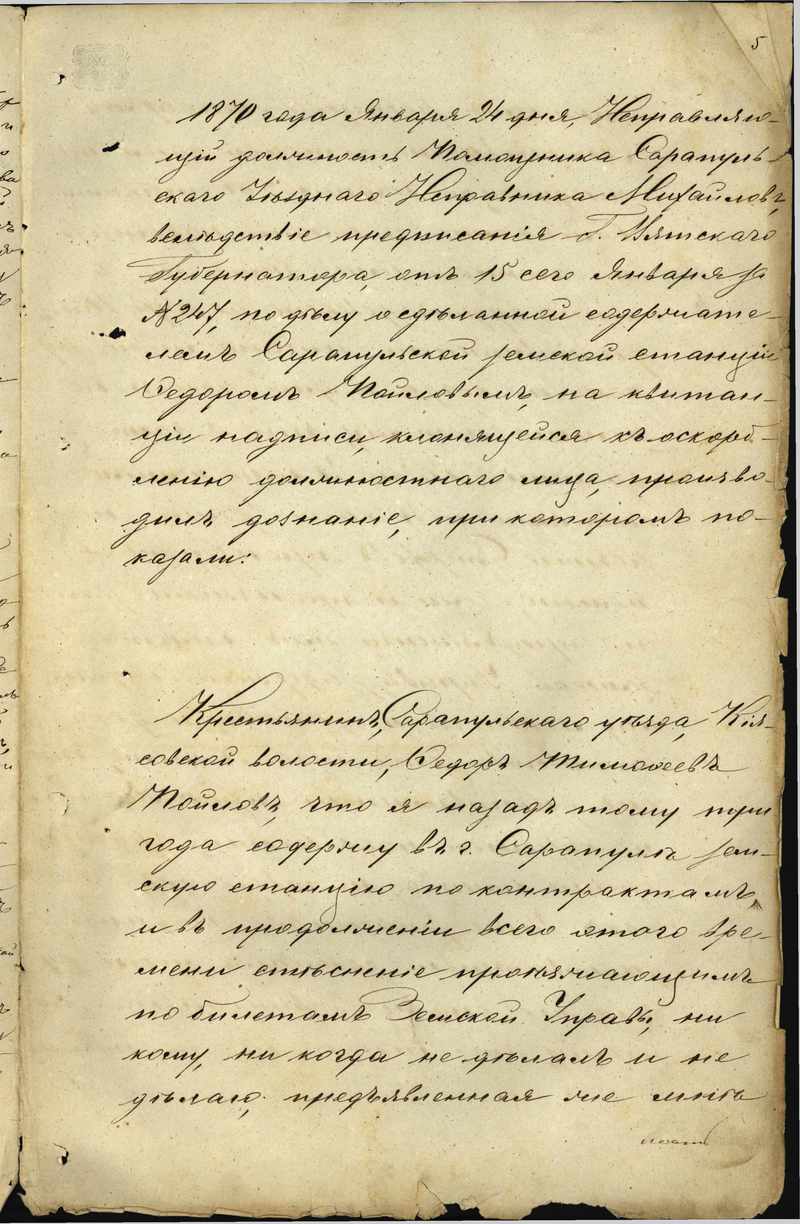 5
1870 года Января 24 дня, Исправляю-
щій должность Помощника Сарапуль-
скаго Уѣзднаго Исправника Михайловъ,
вслѣдствіе предписанія Г. Вятскаго
Губернатора, отъ 15 сего Января за
N 247, по дѣлу о сдѣланной содержате-
лемъ Сарапульской земской станціи
Ѳедоромъ Пойловымъ, на квитан-
ціи надписи, клонящейся къ оскорб-
ленію должностнаго лица, произво-
дилъ дознаніе, при которомъ по-
казали:
Крестьянинъ, Сарапульскаго уѣзда, Кія-
совской волости, Ѳедоръ Тимоѳеевъ
Пойловъ, что я назадъ тому три
года содержу въ г. Сарапулѣ зем-
скую станцію по контрактамъ
и въ продолженіи всего этого вре-
мени стѣсненіе проѣзжающимъ
по билетамъ Земской Управы, ни
кому, ни когда не дѣлалъ и не
дѣлаю; предъявленная же мнѣ